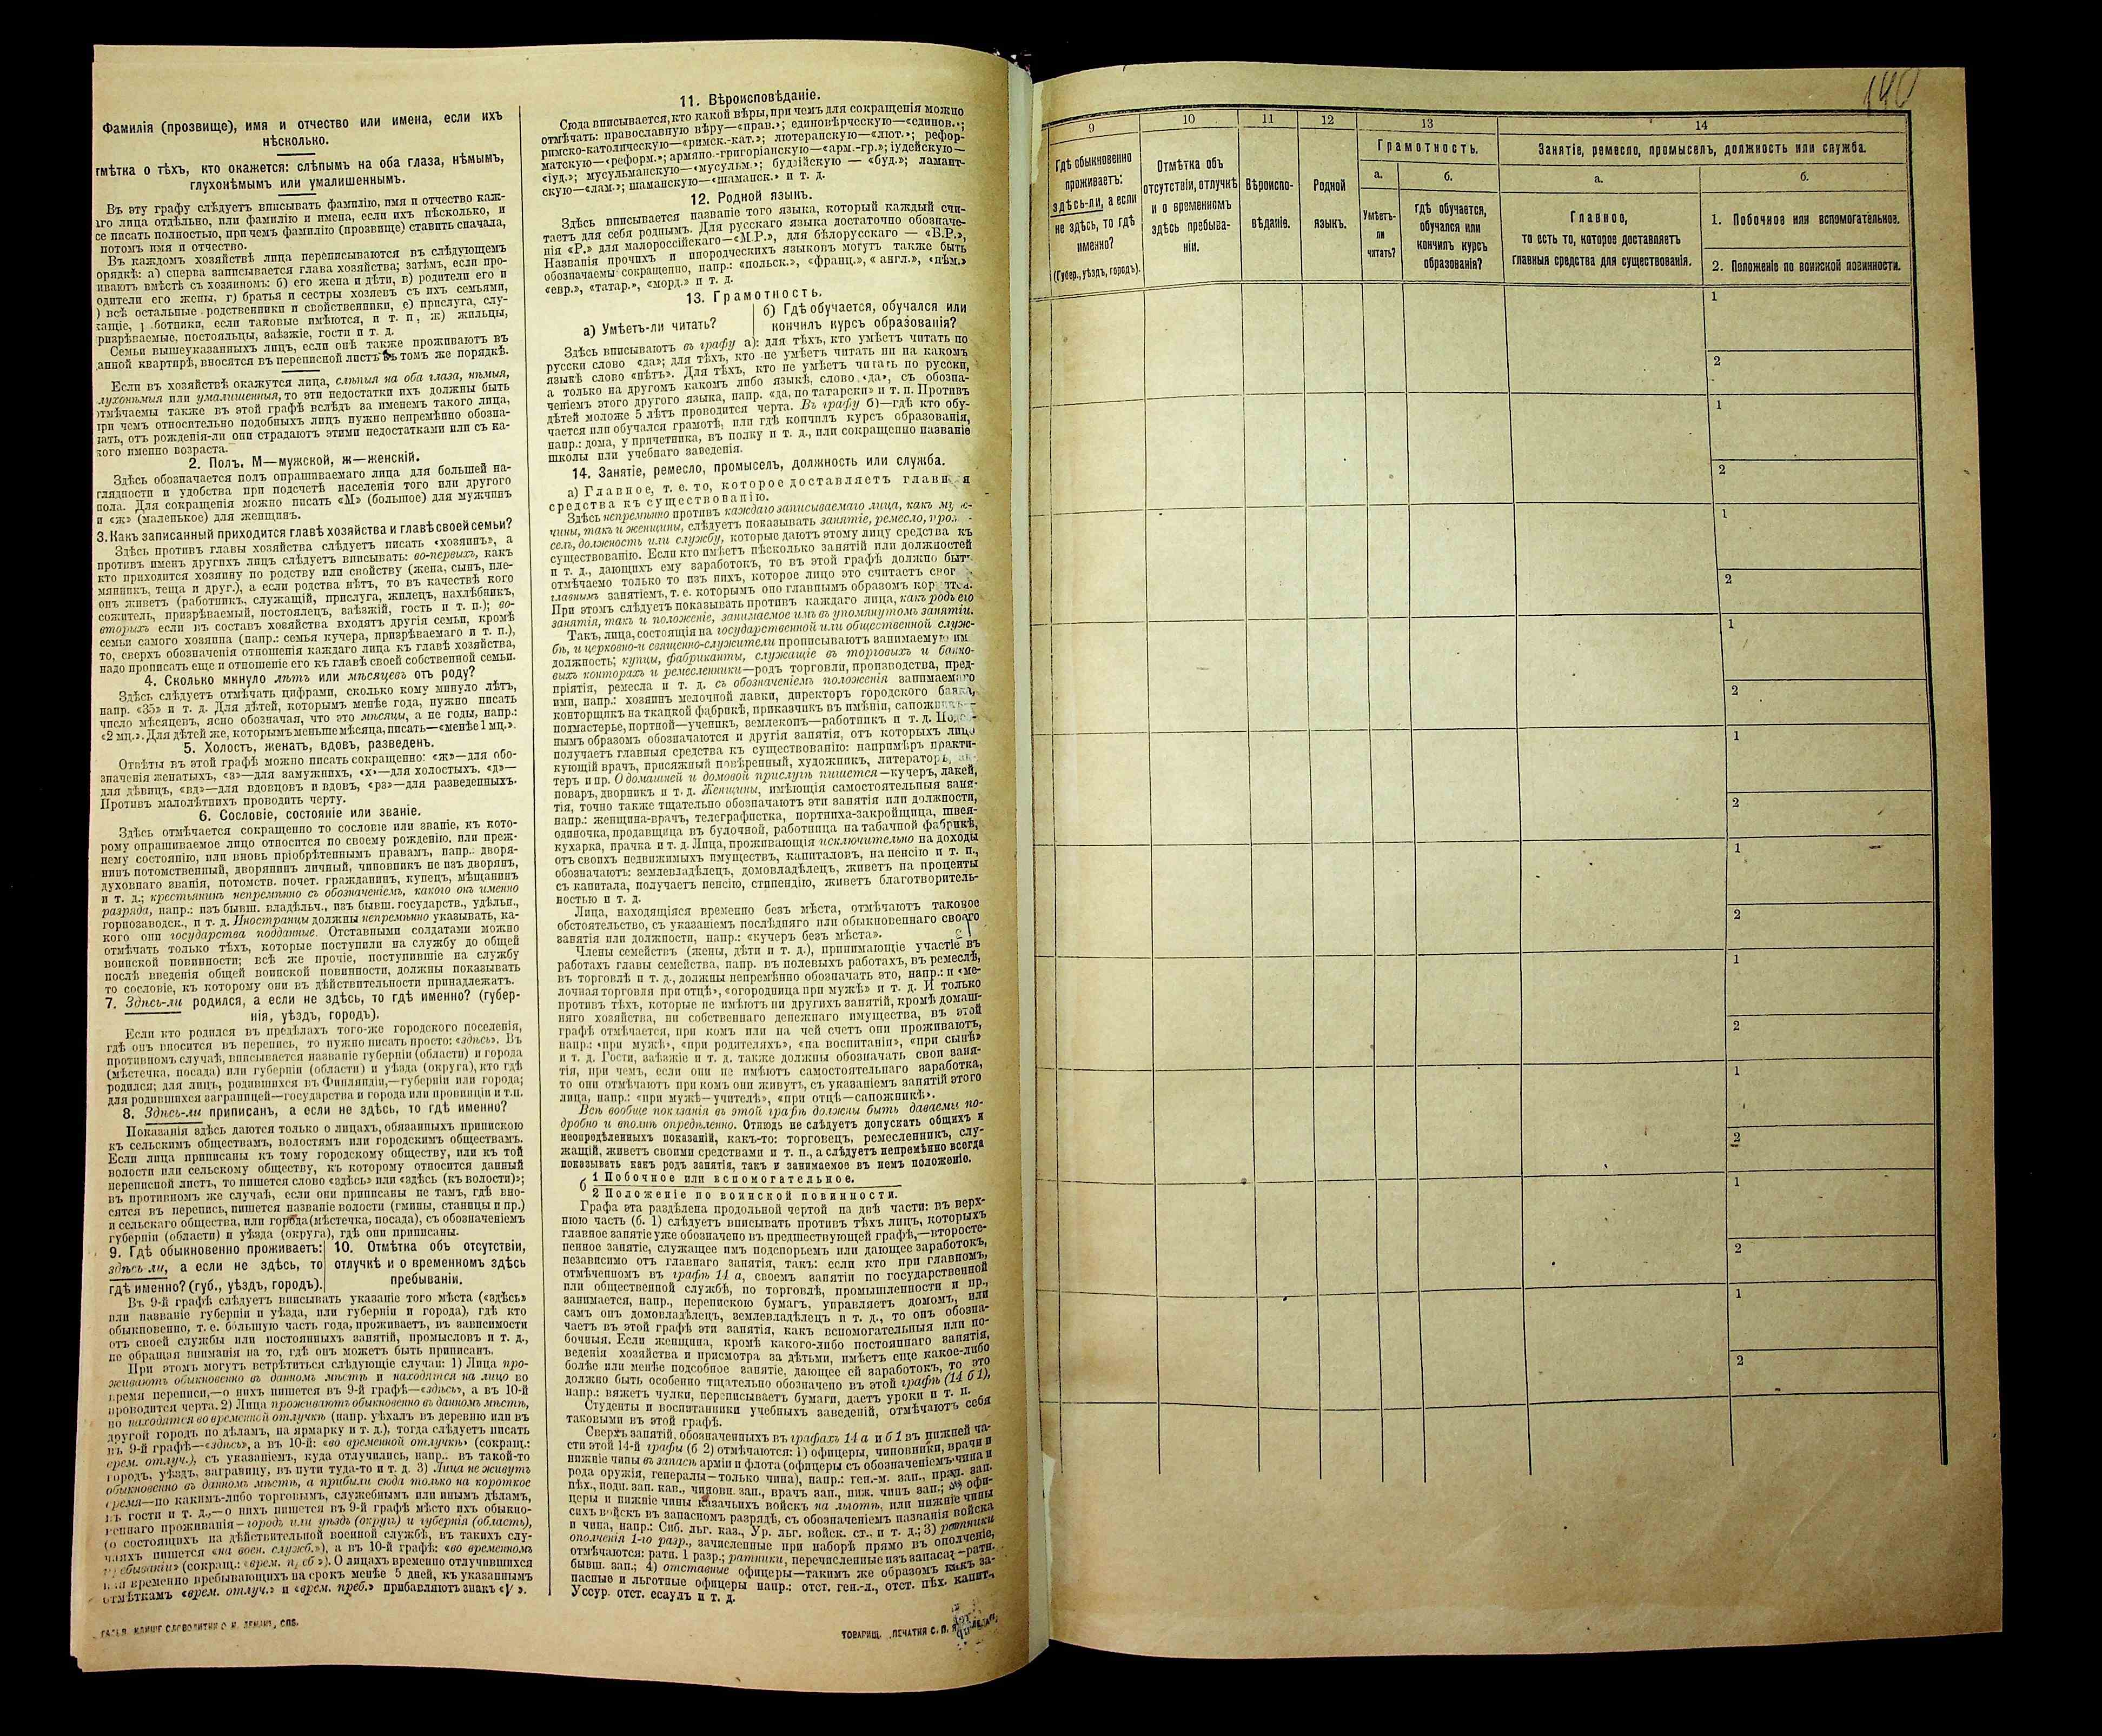 Фамилія (прозвище), имя и отчество или имена, если ихъ
нѣсколько.
мѣтка о тѣхъ, кто окажется: слѣпымъ на оба глаза, нѣмымъ,
глухонѣмымъ или умалишеннымъ.
Въ эту графу слѣдуетъ вписывать фамилію, имя и отчество каж-
аго лица отдѣльно, или фамилію и имена, если ихъ нѣсколько, и
се писать полностью, при чемъ фамилію (прозвище) ставить сначала,
потомъ имя и отчество.
Въ каждомъ хозяйствѣ лица переписываются въ слѣдующемъ
орядкѣ: а) сперва записывается глава хозяйства; затѣмъ, если про-
иваютъ вмѣстѣ съ хозяиномъ: б) его жена и дѣти, в) родители его и
одители его жены, г) братья и сестры хозяевъ съ ихъ семьями,
) всѣ остальные родственники и свойственники, е) прислуга, слу-
ащіе, ботники, если таковые имѣются, и т. п, ж) жильцы,
ризрѣваемые, постояльцы, заѣзжіе, гости и т. д.
Семьи вышеуказанныхъ лицъ, если онѣ также проживаютъ въ
анной квартирѣ, вносятся въ переписной листъ въ томъ же порядкѣ.
Если въ хозяйствѣ окажутся лица, слѣпыя на оба глаза, нѣмыя,
лухонѣмыя или умалишенныя, то эти недостатки ихъ должны быть
тмѣчаемы также въ этой графѣ вслѣдъ за именемъ такого лица,
при чемъ относительно подобныхъ лицъ нужно непремѣнно обозна-
чать, отъ рожденія-ли они страдаютъ этими недостатками или съ ка-
кого именно возраста.
2. Полъ. М—мужской, ж—женскій.
Здѣсь обозначается полъ опрашиваемаго лица для большей на-
глядности и удобства при подсчетѣ населенія того или другого
пола. Для сокращенія можно писать «М» (большое) для мужчинъ
и «ж» (маленькое) для женщинъ.
3. Какъ записанный приходится главѣ хозяйства и главѣ своей семьи?
Здѣсь противъ главы хозяйства слѣдуетъ писать «хозяинъ», а
противъ именъ другихъ лицъ слѣдуетъ вписывать: во-первыхъ, какъ
кто приходится хозяину по родству или свойству (жена, сынъ, пле-
мянникъ, теща и друг.), а если родства нѣтъ, то въ качествѣ кого
онъ живетъ (работникъ, служащій, прислуга, жилецъ, нахлѣбникъ,
сожитель, призрѣваемый, постоялецъ, заѣзжій, гость и т. п.); во-
вторыхъ если въ составъ хозяйства входятъ другія семьи, кромѣ
семьи самого хозяина (напр.: семья кучера, призрѣваемаго и т. п.),
то, сверхъ обозначенія отношенія каждаго лица къ главѣ хозяйства,
надо прописать еще и отношеніе его къ главѣ своей собственной семьи.
4. Сколько минуло лѣтъ или мѣсяцевъ отъ роду?
Здѣсь слѣдуетъ отмѣчать цифрами, сколько кому минуло лѣтъ,
напр. «35» и т. д. Для дѣтей, которымъ менѣе года, нужно писать
число мѣсяцевъ, ясно обозначая, что это мѣсяцы, а не годы, напр.:
«2 мц.». Для дѣтей же, которымъ меньше мѣсяца, писать—«менѣе 1 мц.».
5. Холостъ, женатъ, вдовъ, разведенъ.
Отвѣты въ этой графѣ можно писать сокращенно: «ж»—для обо-
значенія женатыхъ, «з»—для замужнихъ, «х»—для холостыхъ, «д»—
для дѣвицъ, «вд»—для вдовцовъ и вдовъ, «рз»—для разведенныхъ.
Противъ малолѣтнихъ проводить черту.
6. Сословіе, состояніе или званіе.
Здѣсь отмѣчается сокращенно то сословіе или званіе, къ кото-
рому опрашиваемое лицо относится по своему рожденію, или преж-
нему состоянію, или вновь пріобрѣтеннымъ правамъ, напр.: дворя-
нинъ потомственный, дворянинъ личный, чиновникъ не изъ дворянъ,
духовнаго званія, потомств. почет. гражданинъ, купецъ, мѣщанинъ
и т. д.; крестьянинъ непремѣнно съ обозначеніемъ, какого онъ именно
разряда, напр.: изъ бывш. владѣльч., изъ бывш. государств., удѣльн.,
горнозаводск., и т. д. Иностранцы должны непремѣнно указывать, ка-
кого они государства подданные. Отставными солдатами можно
отмѣчать только тѣхъ, которые поступили на службу до общей
воинской повинности; всѣ же прочіе, поступившіе на службу
послѣ введенія общей воинской повинности, должны показывать
то сословіе, къ которому они въ дѣйствительности принадлежатъ.
7. Здѣсь-ли родился, а если не здѣсь, то гдѣ именно? (губер-
нія, уѣздъ, городъ).
Если кто родился въ предѣлахъ того-же городского поселенія,
гдѣ онъ вносится въ перепись, то нужно писать просто: «здѣсь». Въ
противномъ случаѣ, вписывается названіе губерніи (области) и города
(мѣстечка, посада) или губерніи (области) и уѣзда (округа), кто гдѣ
родился; для лицъ, родившихся въ Финляндіи,—губерніи или города;
для родившихся заграницей—государства и города или провинціи и т.п.
8. Здѣсь-ли приписанъ, а если не здѣсь, то гдѣ именно?
Показанія здѣсь даются только о лицахъ, обязанныхъ припискою
къ сельскимъ обществамъ, волостямъ или городскимъ обществамъ.
Если лица приписаны къ тому городскому обществу, или къ той
волости или сельскому обществу, къ которому относится данный
переписной листъ, то пишется слово «здѣсь» или «здѣсь (къ волости)»;
въ противномъ же случаѣ, если они приписаны не тамъ, гдѣ вно-
сятся въ перепись, пишется названіе волости (гмины, станицы и пр.)
и сельскаго общества, или города (мѣстечка, посада), съ обозначеніемъ
губерніи (области) и уѣзда (округа), гдѣ они приписаны.
9. Гдѣ обыкновенно проживаетъ:
здѣсь-ли, а если не здѣсь, то
гдѣ именно? (губ., уѣздъ, городъ).
10. Отмѣтка объ отсутствіи,
отлучкѣ и о временномъ здѣсь
пребываніи.
Въ 9-й графѣ слѣдуетъ вписывать указаніе того мѣста («здѣсь»
или названіе губерніи и уѣзда, или губерніи и города), гдѣ кто
обыкновенно, т. е. бо́льшую часть года, проживаетъ, въ зависимости
отъ своей службы или постоянныхъ занятій, промысловъ и т. д.,
не обращая вниманія на то, гдѣ онъ можетъ быть приписанъ.
При этомъ могутъ встрѣтиться слѣдующіе случаи: 1) Лица про-
живаютъ обыкновенно въ данномъ мѣстѣ и находятся на лицо во
время переписи,—о нихъ пишется въ 9-й графѣ—«здѣсь», а въ 10-й
проводится черта. 2) Лица проживаютъ обыкновенно въ данномъ мѣстѣ,
но находятся во временной отлучкѣ (напр. уѣхалъ въ деревню или въ
другой городъ по дѣламъ, на ярмарку и т. д.), тогда слѣдуетъ писать
въ 9-й графѣ—«здѣсь», а въ 10-й: «во временной отлучкѣ» (сокращ.:
врем. отлуч.), съ указаніемъ, куда отлучились, напр.: въ такой-то
городъ, уѣздъ, заграницу, въ пути туда-то и т. д. 3) Лица не живутъ
обыкновенно въ данномъ мѣстѣ, а прибыли сюда только на короткое
время—по какимъ-либо торговымъ, служебнымъ или инымъ дѣламъ,
въ гости и т. д.,—о нихъ пишется въ 9-й графѣ мѣсто ихъ обыкно-
веннаго проживанія—городъ или уѣздъ (округъ) и губернія (область),
(о состоящихъ на дѣйствительной военной службѣ, въ такихъ слу-
чаяхъ пишется «на воен. служб.»), а въ 10-й графѣ: «во временномъ
пребываніи» (сокращ.: «врем. преб»). О лицахъ временно отлучившихся
или временно пребывающихъ на срокъ менѣе 5 дней, къ указаннымъ
отмѣткамъ «врем. отлуч.» и «врем. преб.» прибавляютъ знакъ «V».
11. Вѣроисповѣданіе.
Сюда вписывается, кто какой вѣры, при чемъ для сокращенія можно
отмѣчать: православную вѣру—«прав.»; единовѣрческую—«единов.»;
римско-католическую—«римск.-кат.»; лютеранскую—«лют.»; рефор-
матскую—«реформ.»; армяно.-григоріанскую—«арм.-гр.»; іудейскую—
«іуд.»; мусульманскую—«мусульм.»; будзійскую — «буд.»; ламаит-
скую—«лам.»; шаманскую—«шаманск.» и т. д.
12. Родной языкъ.
Здѣсь вписывается названіе того языка, который каждый счи-
таетъ для себя роднымъ. Для русскаго языка достаточно обозначе-
нія «Р.» для малороссійскаго—«М.Р.», для бѣлорусскаго — «Б.Р.»,
Названія прочихъ и инородческихъ языковъ могутъ также быть
обозначаемы сокращенно, напр.: «польск.», «франц.», «англ.», «нѣм.»
«евр.», «татар.», «морд.» и т. д.
13. Грамотность.
а) Умѣетъ-ли читать?
б) Гдѣ обучается, обучался или
кончилъ курсъ образованія?
Здѣсь вписываютъ въ графу а): для тѣхъ, кто умѣетъ читать по
русски слово «да»; для тѣхъ, кто не умѣетъ читать ни на какомъ
языкѣ слово «нѣтъ». Для тѣхъ, кто не умѣетъ читать по русски,
а только на другомъ какомъ либо языкѣ, слово «да», съ обозна-
ченіемъ этого другого языка, напр. «да, по татарски» и т. п. Противъ
дѣтей моложе 5 лѣтъ проводится черта. Въ графу б)—гдѣ кто обу-
чается или обучался грамотѣ, или гдѣ кончилъ курсъ образованія,
напр.: дома, у причетника, въ полку и т. д., или сокращенно названіе
школы или учебнаго заведенія.
14. Занятіе, ремесло, промыселъ, должность или служба.
а) Главное, т. е. то, которое доставляетъ главныя
средства къ существованію.
Здѣсь непремѣнно противъ каждаго записываемаго лица, какъ муж-
чины, такъ и женщины, слѣдуетъ показывать занятіе, ремесло, промы-
селъ, должность или службу, которые даютъ этому лицу средства къ
существованію. Если кто имѣетъ нѣсколько занятій или должностей
и т. д., дающихъ ему заработокъ, то въ этой графѣ должно быть
отмѣчаемо только то изъ нихъ, которое лицо это считаетъ своимъ
главнымъ занятіемъ, т. е. которымъ оно главнымъ образомъ кормится.
При этомъ слѣдуетъ показывать противъ каждаго лица, какъ родъ его
занятія, такъ и положеніе, занимаемое имъ въ упомянутомъ занятіи.
Такъ, лица, состоящія на государственной или общественной служ-
бѣ, и церковно-и священно-служители прописываютъ занимаемую им
должность; купцы, фабриканты, служащіе въ торговыхъ и банко-
выхъ конторахъ и ремесленники—родъ торговли, производства, пред-
пріятія, ремесла и т. д. съ обозначеніемъ положенія занимаемаго
ими, напр.: хозяинъ мелочной лавки, директоръ городского банка,
конторщикъ на ткацкой фабрикѣ, приказчикъ въ имѣніи, сапожникъ—
подмастерье, портной—ученикъ, землекопъ—работникъ и т. д. Подоб-
нымъ образомъ обозначаются и другія занятія, отъ которыхъ лицо
получаетъ главныя средства къ существованію: напримѣръ практи-
кующій врачъ, присяжный повѣренный, художникъ, литераторъ, ак-
теръ и пр. О домашней и домовой прислугѣ пишется—кучеръ, лакей,
поваръ, дворникъ и т. д. Женщины, имѣющія самостоятельныя заня-
тія, точно также тщательно обозначаютъ эти занятія или должности,
напр.: женщина-врачъ, телеграфистка, портниха-закройщица, швея-
одиночка, продавщица въ булочной, работница на табачной фабрикѣ,
кухарка, прачка и т. д. Лица, проживающія исключительно на доходы
отъ своихъ недвижимыхъ имуществъ, капиталовъ, на пенсію и т. п.,
обозначаютъ: землевладѣлецъ, домовладѣлецъ, живетъ на проценты
съ капитала, получаетъ пенсію, стипендію, живетъ благотворитель-
ностью и т. д.
Лица, находящіяся временно безъ мѣста, отмѣчаютъ таковое
обстоятельство, съ указаніемъ послѣдняго или обыкновеннаго своего
занятія или должности, напр.: «кучеръ безъ мѣста».
Члены семействъ (жены, дѣти и т. д.), принимающіе участіе въ
работахъ главы семейства, напр. въ полевыхъ работахъ, въ ремеслѣ,
въ торговлѣ и т. д., должны непремѣнно обозначать это, напр.: и «ме-
лочная торговля при отцѣ», «огородница при мужѣ» и т. д. И только
противъ тѣхъ, которые не имѣютъ ни другихъ занятій, кромѣ домаш-
няго хозяйства, ни собственнаго денежнаго имущества, въ этой
графѣ отмѣчается, при комъ или на чей счетъ они проживаютъ,
напр.: «при мужѣ», «при родителяхъ», «на воспитаніи», «при сынѣ»
и т. д. Гости, заѣзжіе и т. д. также должны обозначать свои заня-
тія, при чемъ, если они не имѣютъ самостоятельнаго заработка,
то они отмѣчаютъ при комъ они живутъ, съ указаніемъ занятій этого
лица, напр.: «при мужѣ—учителѣ», «при отцѣ—сапожникѣ».
Всѣ вообще показанія въ этой графѣ должны быть даваемы по-
дробно и вполнѣ опредѣленно. Отнюдь не слѣдуетъ допускать общихъ и
неопредѣленныхъ показаній, какъ-то: торговецъ, ремесленникъ, слу-
жащій, живетъ своими средствами и т. п., а слѣдуетъ непремѣнно всегда
показывать какъ родъ занятія, такъ и занимаемое въ немъ положеніе.
б 1 Побочное или вспомогательное.
2 Положеніе по воинской повинности.
Графа эта раздѣлена продольной чертой на двѣ части: въ верх-
нюю часть (б. 1) слѣдуетъ вписывать противъ тѣхъ лицъ, которыхъ
главное занятіе уже обозначено въ предшествующей графѣ,—второсте-
пенное занятіе, служащее имъ подспорьемъ или дающее заработокъ,
независимо отъ главнаго занятія, такъ: если кто при главномъ,
отмѣченномъ въ графѣ 14 а, своемъ занятіи по государственной
или общественной службѣ, по торговлѣ, промышленности и пр.,
занимается, напр., перепискою бумагъ, управляетъ домомъ, или
самъ онъ домовладѣлецъ, землевладѣлецъ и т. д., то онъ обозна-
чаетъ въ этой графѣ эти занятія, какъ вспомогательныя или по-
бочныя. Если женщина, кромѣ какого-либо постояннаго занятія,
веденія хозяйства и присмотра за дѣтьми, имѣетъ еще какое-либо
болѣе или менѣе подсобное занятіе, дающее ей заработокъ, то это
должно быть особенно тщательно обозначено въ этой графѣ (14 б 1),
напр.: вяжетъ чулки, переписываетъ бумаги, даетъ уроки и т. п.
Студенты и воспитанники учебныхъ заведеній, отмѣчаютъ себя
таковыми въ этой графѣ.
Сверхъ занятій, обозначенныхъ въ графахъ 14 а и б 1 въ нижней ча-
сти этой 14-й графы (б 2) отмѣчаются: 1) офицеры, чиновники, врачи и
нижніе чины въ запасѣ арміи и флота (офицеры съ обозначеніемъ чина и
рода оружія, генералы—только чина), напр.: ген.-м. зап., прап. зап.
пѣх., подп. зап. кав., чиновн. зап., врачъ зап., ниж. чинъ зап.; 2) офи-
церы и нижніе чины казачьихъ войскъ на льготѣ, или нижніе чины
сихъ войскъ въ запасномъ разрядѣ, съ обозначеніемъ названія войска
и чина, напр.: Сиб. льг. каз., Ур. льг. войск. ст., и т. д.; 3) ратники
ополченія 1-го разр., зачисленные при наборѣ прямо въ ополченіе,
отмѣчаются: ратн. 1 разр.; ратники, перечисленные изъ запаса,—ратн.
бывш. зап.; 4) отставные офицеры—такимъ же образомъ какъ за-
пасные и льготные офицеры напр.: отст. ген.-л., отст. пѣх. капит.,
Уссур. отст. есаулъ и т. д.
СПБ.
ТОВАРИЩ. „ПЕЧАТНЯ С. П.
140
9
10
11
12
13
14
Гдѣ обыкновенно
проживаетъ:
здѣсь-ли, а если
не здѣсь, то гдѣ
именно?
(Губер., уѣздъ, городъ).
Отмѣтка объ
отсутствіи, отлучкѣ
и о временномъ
здѣсь пребыва-
ніи.
Вѣроиспо-
вѣданіе.
Родной
языкъ.
Грамотность.
а.
б.
Умѣетъ-
ли
читать?
Гдѣ обучается,
обучался или
кончилъ курсъ
образованія?
Занятіе, ремесло, промыселъ, должность или служба.
а.
б.
Главное,
то есть то, которое доставляетъ
главныя средства для существованія.
1. Побочное или вспомогательное.
2. Положеніе по воинской повинности.
1
2
1
2
1
2
1
2
1
2
1
2
1
2
1
2
1
2
1
2